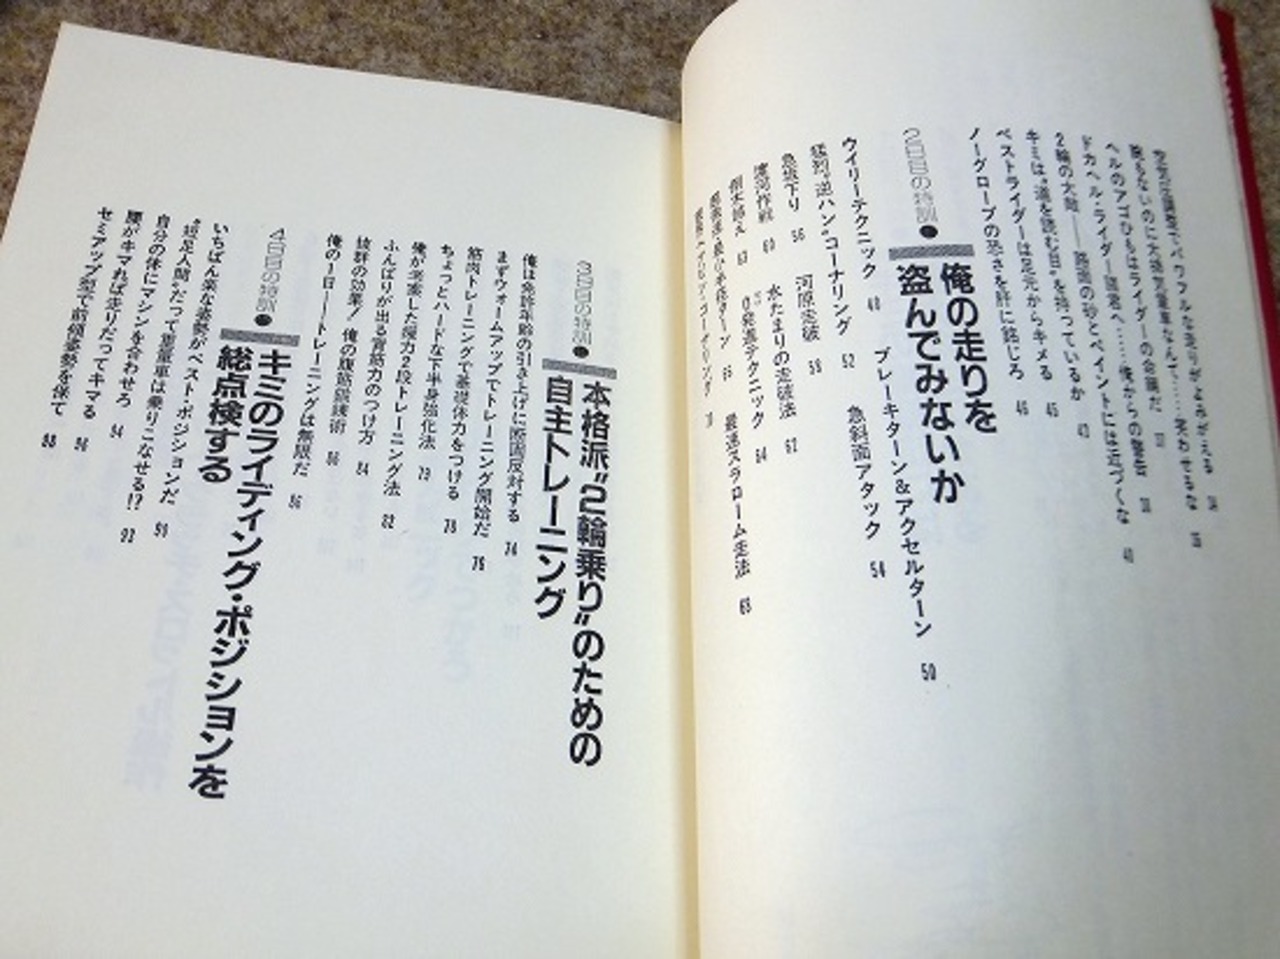 空気圧調整でパワフルな走りがよみがえる
勝もないのに大橋気重量なんて……笑わせるな
ヘルのアゴひもはライダーの命綱だ
ドカヘル・ライダー諸君へ……俺からの警告
2輪の大敵——路面の砂とペイントには近づくな
キミは“道を読む目”を持っているか 43
ベストライダーは足元からキメる 45
ノーグローブの恐さを肝に銘じろ 46
2日目の特訓●
俺の走りを
盗んでみないか
ウイリーテクニック 48 ブレーキターン&アクセルターン 50
猛烈“逆ハン”コーナリング 52 急斜面アタック 54
急坂下り 56 河原走破 58
渡河作戦 60 水たまりの走破法 62
倒木越え 63 0発進テクニック 64
最速スラローム走法 68
3日目の特訓●
本格派“2輪乗り”のための
自主トレーニング
俺は免許年齢の引き上げに断固反対する 74
まずウォームアップでトレーニング開始だ 76
筋肉トレーニングで基礎体力をつける 78
ちょっとハードな下半身強化法 79
俺が考案した握力2段トレーニング法 82
ふんばりが出る背筋力のつけ方 84
抜群の効果! 俺の腹筋鍛錬術 86
俺の1日——トレーニングは無限だ 86
4日目の特訓●
キミのライディング・ポジションを
総点検する
いちばん楽な姿勢がベスト・ポジションだ 90
“短足人間”だって重量車は乗りこなせる!? 92
自分の体にマシンを合わせろ 94
腰がキマれば走りだってキマる 96
セミアップ型で前傾姿勢を保て 98